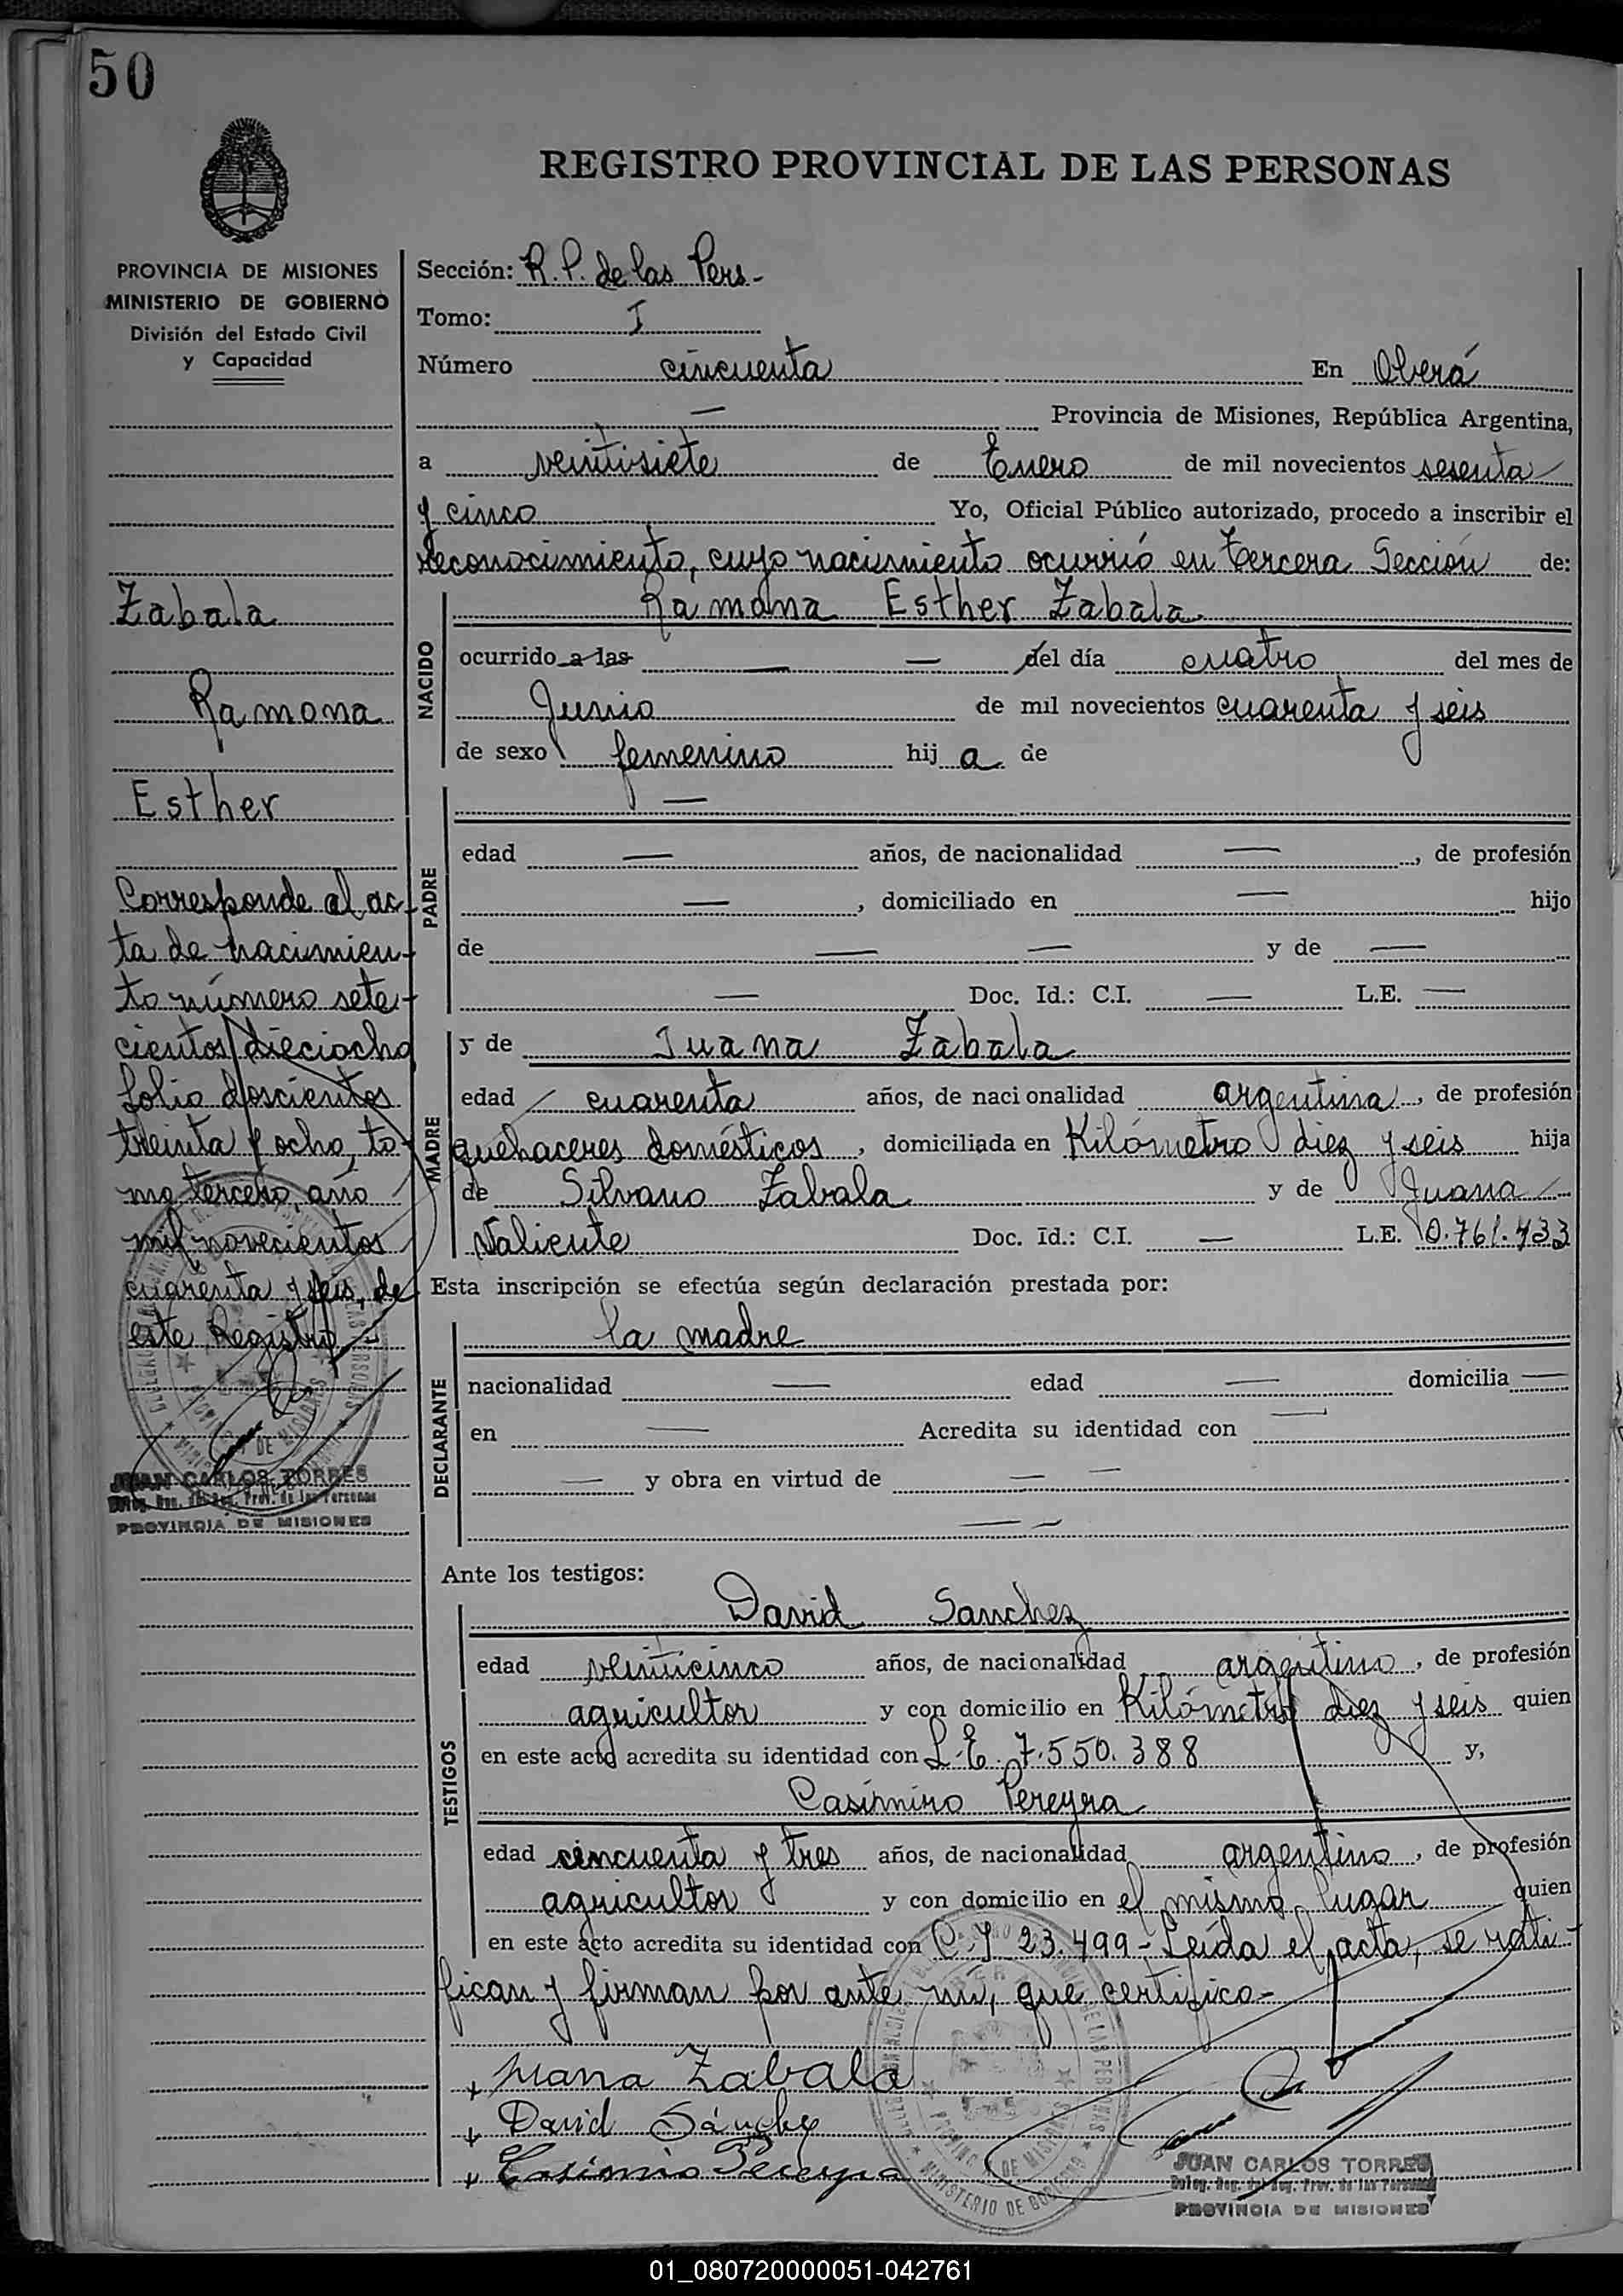 50
REGISTRO PROVINCIAL DE LAS PERSONAS
PROVINCIA DE MISIONES
MINISTERIO DE GOBIERNO
División del Estado Civil
y Capacidad
Zabala
Ramona
Esther
Corresponde al ac-
ta de nacimien-
to número sete-
cientos dieciocho
folio doscientos
treinta y ocho, to-
mo tercero, año
mil novecientos
cuarenta y seis, de
este Registro.-
JUAN CARLOS TORRES
PROVINCIA DE MISIONES
Sección: R. P. de las Pers-
Tomo: I
Número cincuenta En Oberá
— Provincia de Misiones, República Argentina,
a veintisiete de Enero de mil novecientos sesenta
y cinco Yo, Oficial Público autorizado, procedo a inscribir el
reconocimiento, cuyo nacimiento ocurrió en tercera Sección de:
NACIDO
Ramona Esther Zabala
ocurrido a las — — del día cuatro del mes de
Junio de mil novecientos cuarenta y seis
de sexo femenino hij a de
PADRE
—
edad — años, de nacionalidad — , de profesión
— , domiciliado en — hijo
de — — y de —
— Doc. Id.: C.I. — L.E. —
MADRE
y de Juana Zabala
edad cuarenta años, de nacionalidad argentina , de profesión
quehaceres domésticos , domiciliada en Kilómetro diez y seis hija
de Silvano Zabala y de Juana
Valiente Doc. Id.: C.I. — L.E. 0.761.733
Esta inscripción se efectúa según declaración prestada por:
DECLARANTE
la madre
nacionalidad — edad — domicilia —
en — Acredita su identidad con —
— y obra en virtud de — —
— —
Ante los testigos:
TESTIGOS
David Sanchez
edad veinticinco años, de nacionalidad argentino , de profesión
agricultor y con domicilio en Kilómetro diez y seis quien
en este acto acredita su identidad con L.E. 7.550.388 y,
Casimiro Pereyra
edad cincuenta y tres años, de nacionalidad argentino , de profesión
agricultor y con domicilio en el mismo lugar quien
en este acto acredita su identidad con C.I 23.499- Leída el acta, se rati-
fican y firman por ante mí, que certifico-
+ Juana Zabala
+ David Sánchez
+ Casimiro Pereyra
JUAN CARLOS TORRES
PROVINCIA DE MISIONES
01_080720000051-042761